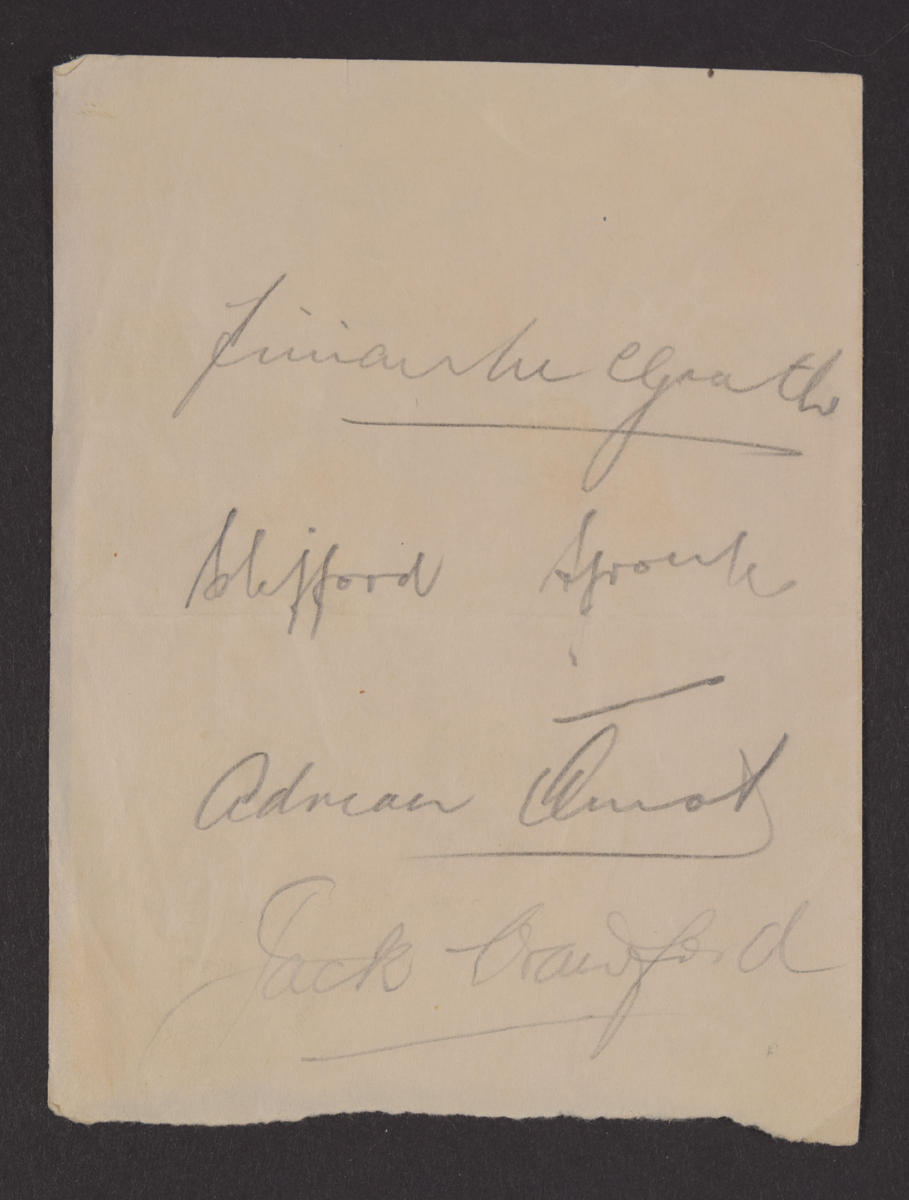 Vivian Mc Grath
Clifford Sproule
Adrian Quist
Jack Crawford